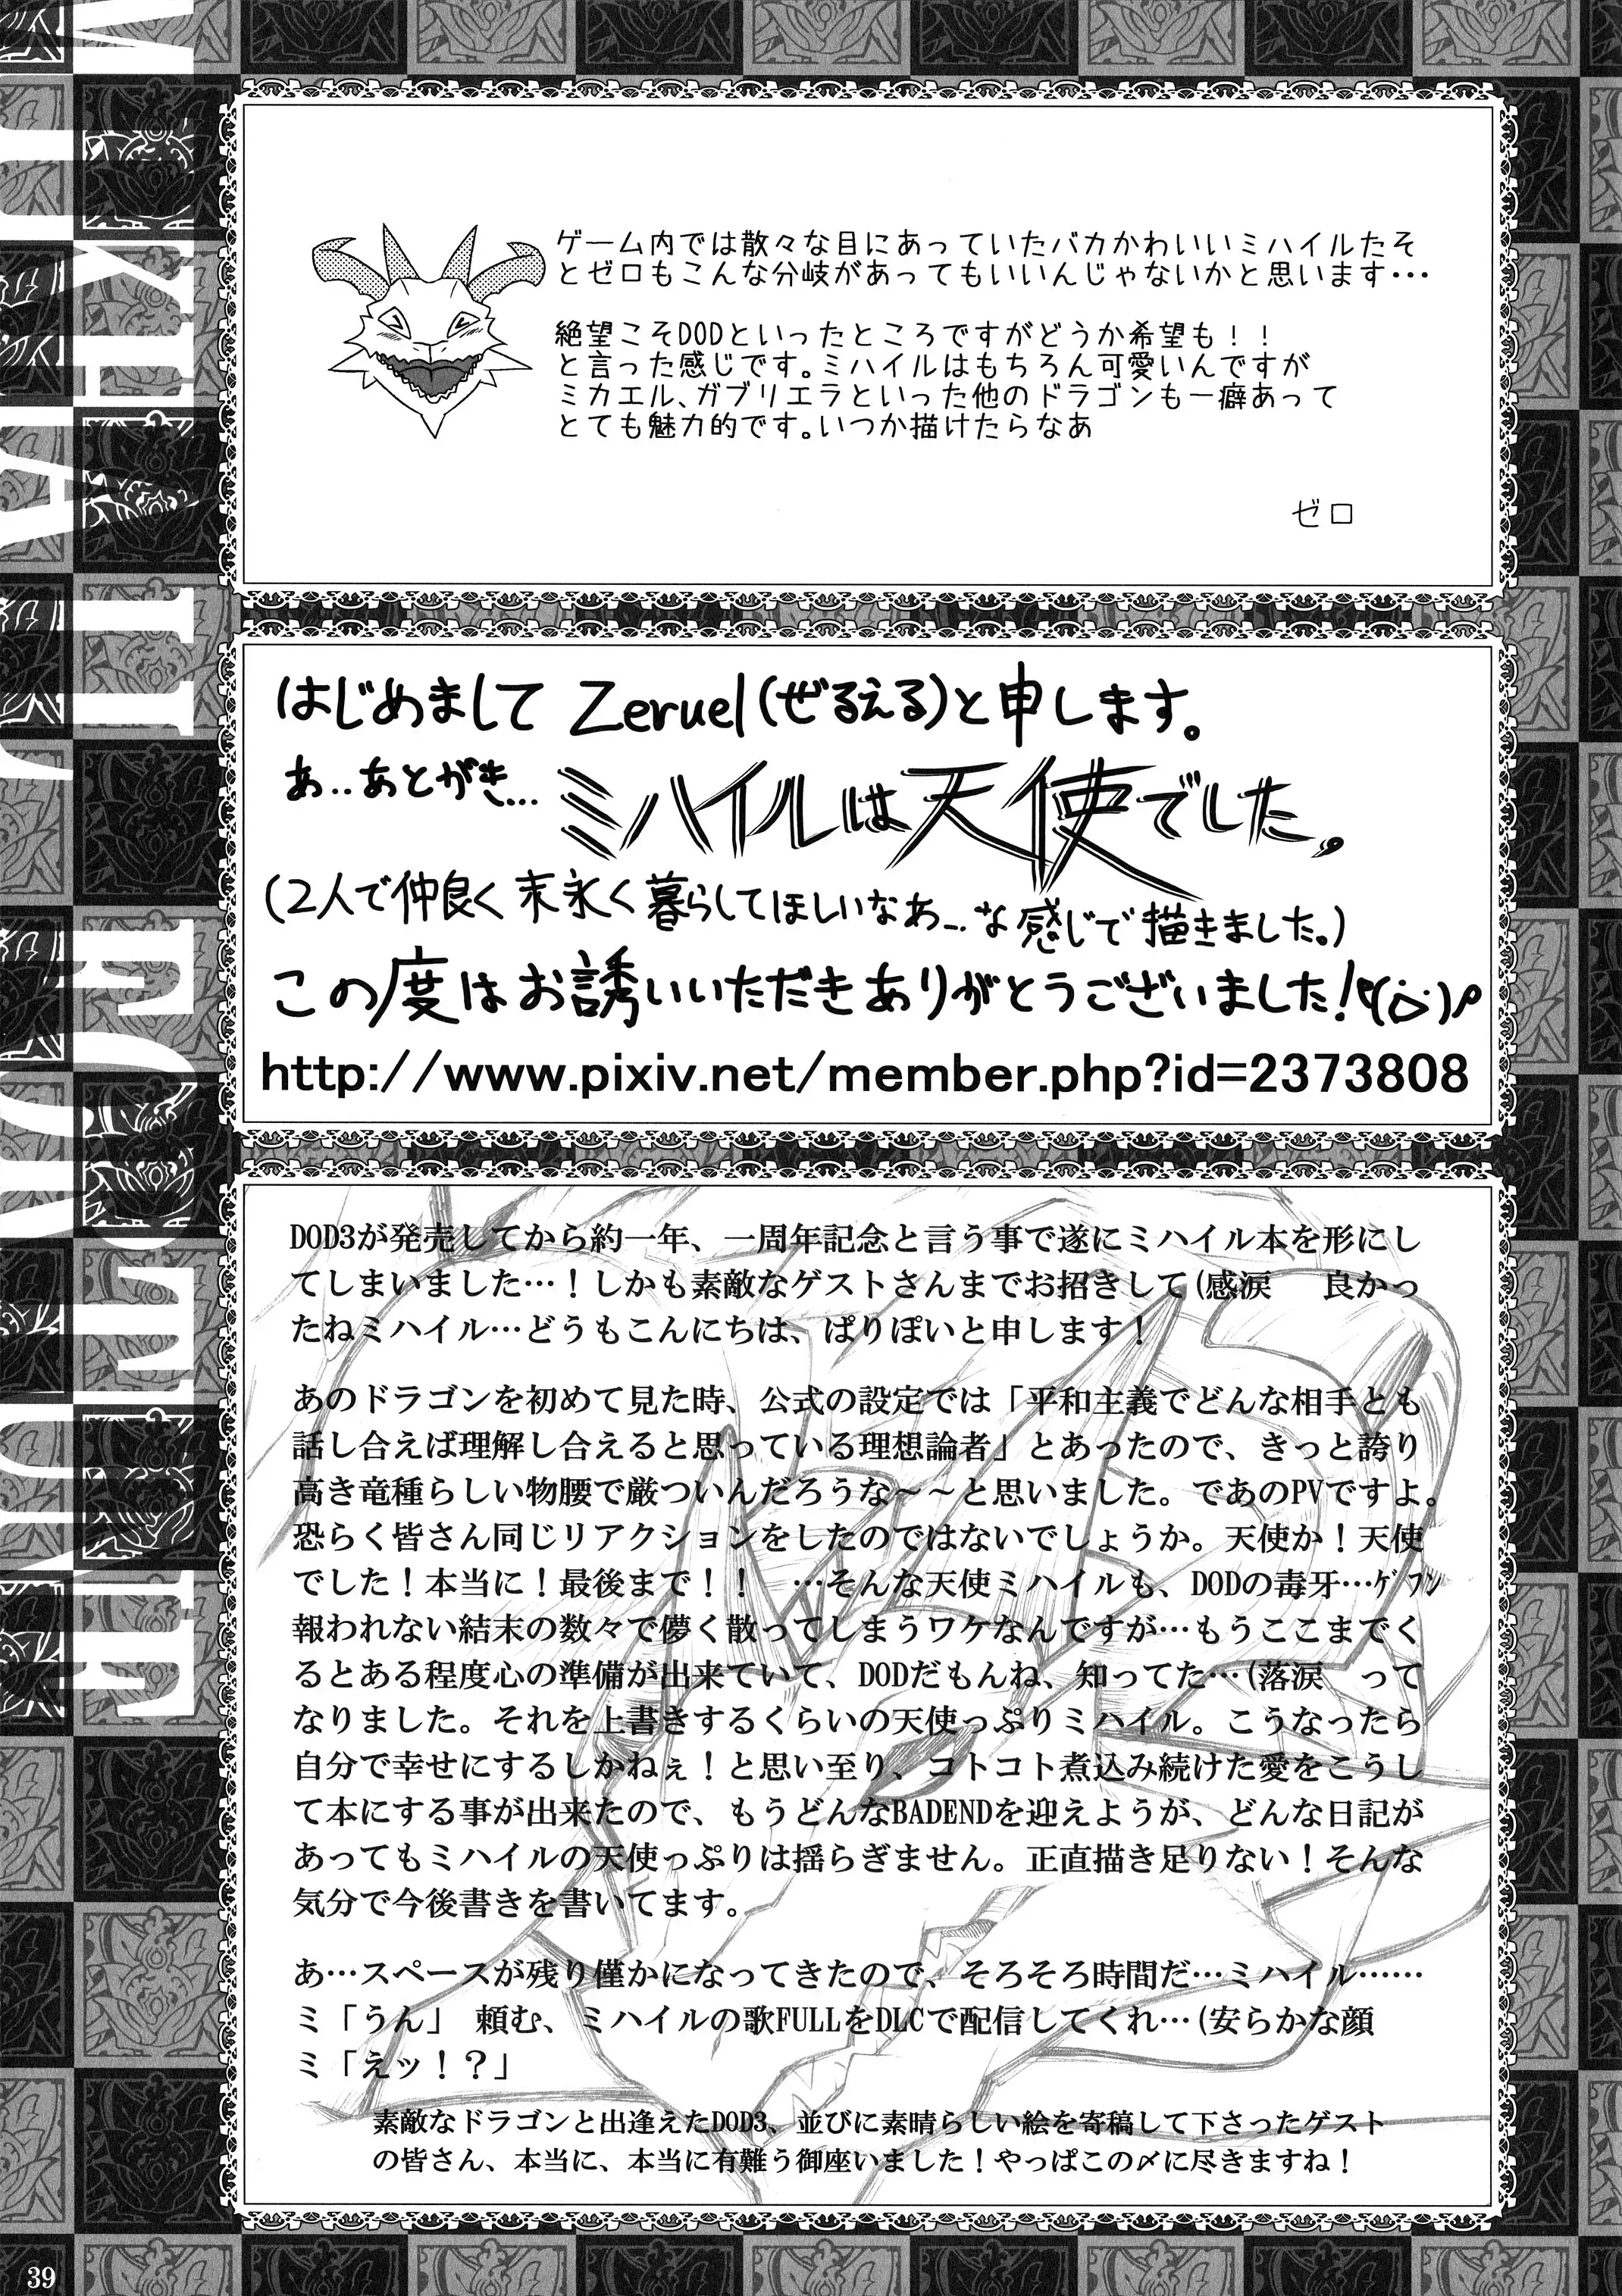 ゲーム内では散々な目にあっていたバカかわいいミハイルたそ
とゼロもこんな分岐があってもいいんじゃないかと思います・・・
絶望こそDODといったところですがどうか希望も！！
と言った感じです。ミハイルはもちろん可愛いんですが
ミカエル、ガブリエラといった他のドラゴンも一癖あって
とても魅力的です。いつか描けたらなあ
ゼロ
はじめまして Zeruel(ぜるえる)と申します。
あ..あとがき...ミハイルは天使でした。
(2人で仲良く末永く暮らしてほしいなぁ...な感じで描きました。)
この度はお誘いいただきありがとうございました!
http://www.pixiv.net/member.php?id=2373808
DOD3が発売してから約一年、一周年記念と言う事で遂にミハイル本を形にし
てしまいました…！しかも素敵なゲストさんまでお招きして(感涙　良かっ
たねミハイル…どうもこんにちは、ぱりぽいと申します！
あのドラゴンを初めて見た時、公式の設定では「平和主義でどんな相手とも
話し合えば理解し合えると思っている理想論者」とあったので、きっと誇り
高き竜種らしい物腰で厳ついんだろうな～～と思いました。であのPVですよ。
恐らく皆さん同じリアクションをしたのではないでしょうか。天使か！天使
でした！本当に！最後まで！！　…そんな天使ミハイルも、DODの毒牙…ｹﾞﾌﾝ
報われない結末の数々で儚く散ってしまうワケなんですが…もうここまでく
るとある程度心の準備が出来ていて、DODだもんね、知ってた…(落涙　って
なりました。それを上書きするくらいの天使っぷりミハイル。こうなったら
自分で幸せにするしかねぇ！と思い至り、コトコト煮込み続けた愛をこうし
て本にする事が出来たので、もうどんなBADENDを迎えようが、どんな日記が
あってもミハイルの天使っぷりは揺らぎません。正直描き足りない！そんな
気分で今後書きを書いてます。
あ…スペースが残り僅かになってきたので、そろそろ時間だ…ミハイル……
ミ「うん」　頼む、ミハイルの歌FULLをDLCで配信してくれ…(安らかな顔
ミ「えッ！？」
素敵なドラゴンと出逢えたDOD3、並びに素晴らしい絵を寄稿して下さったゲスト
の皆さん、本当に、本当に有難う御座いました！やっぱこの〆に尽きますね！
39